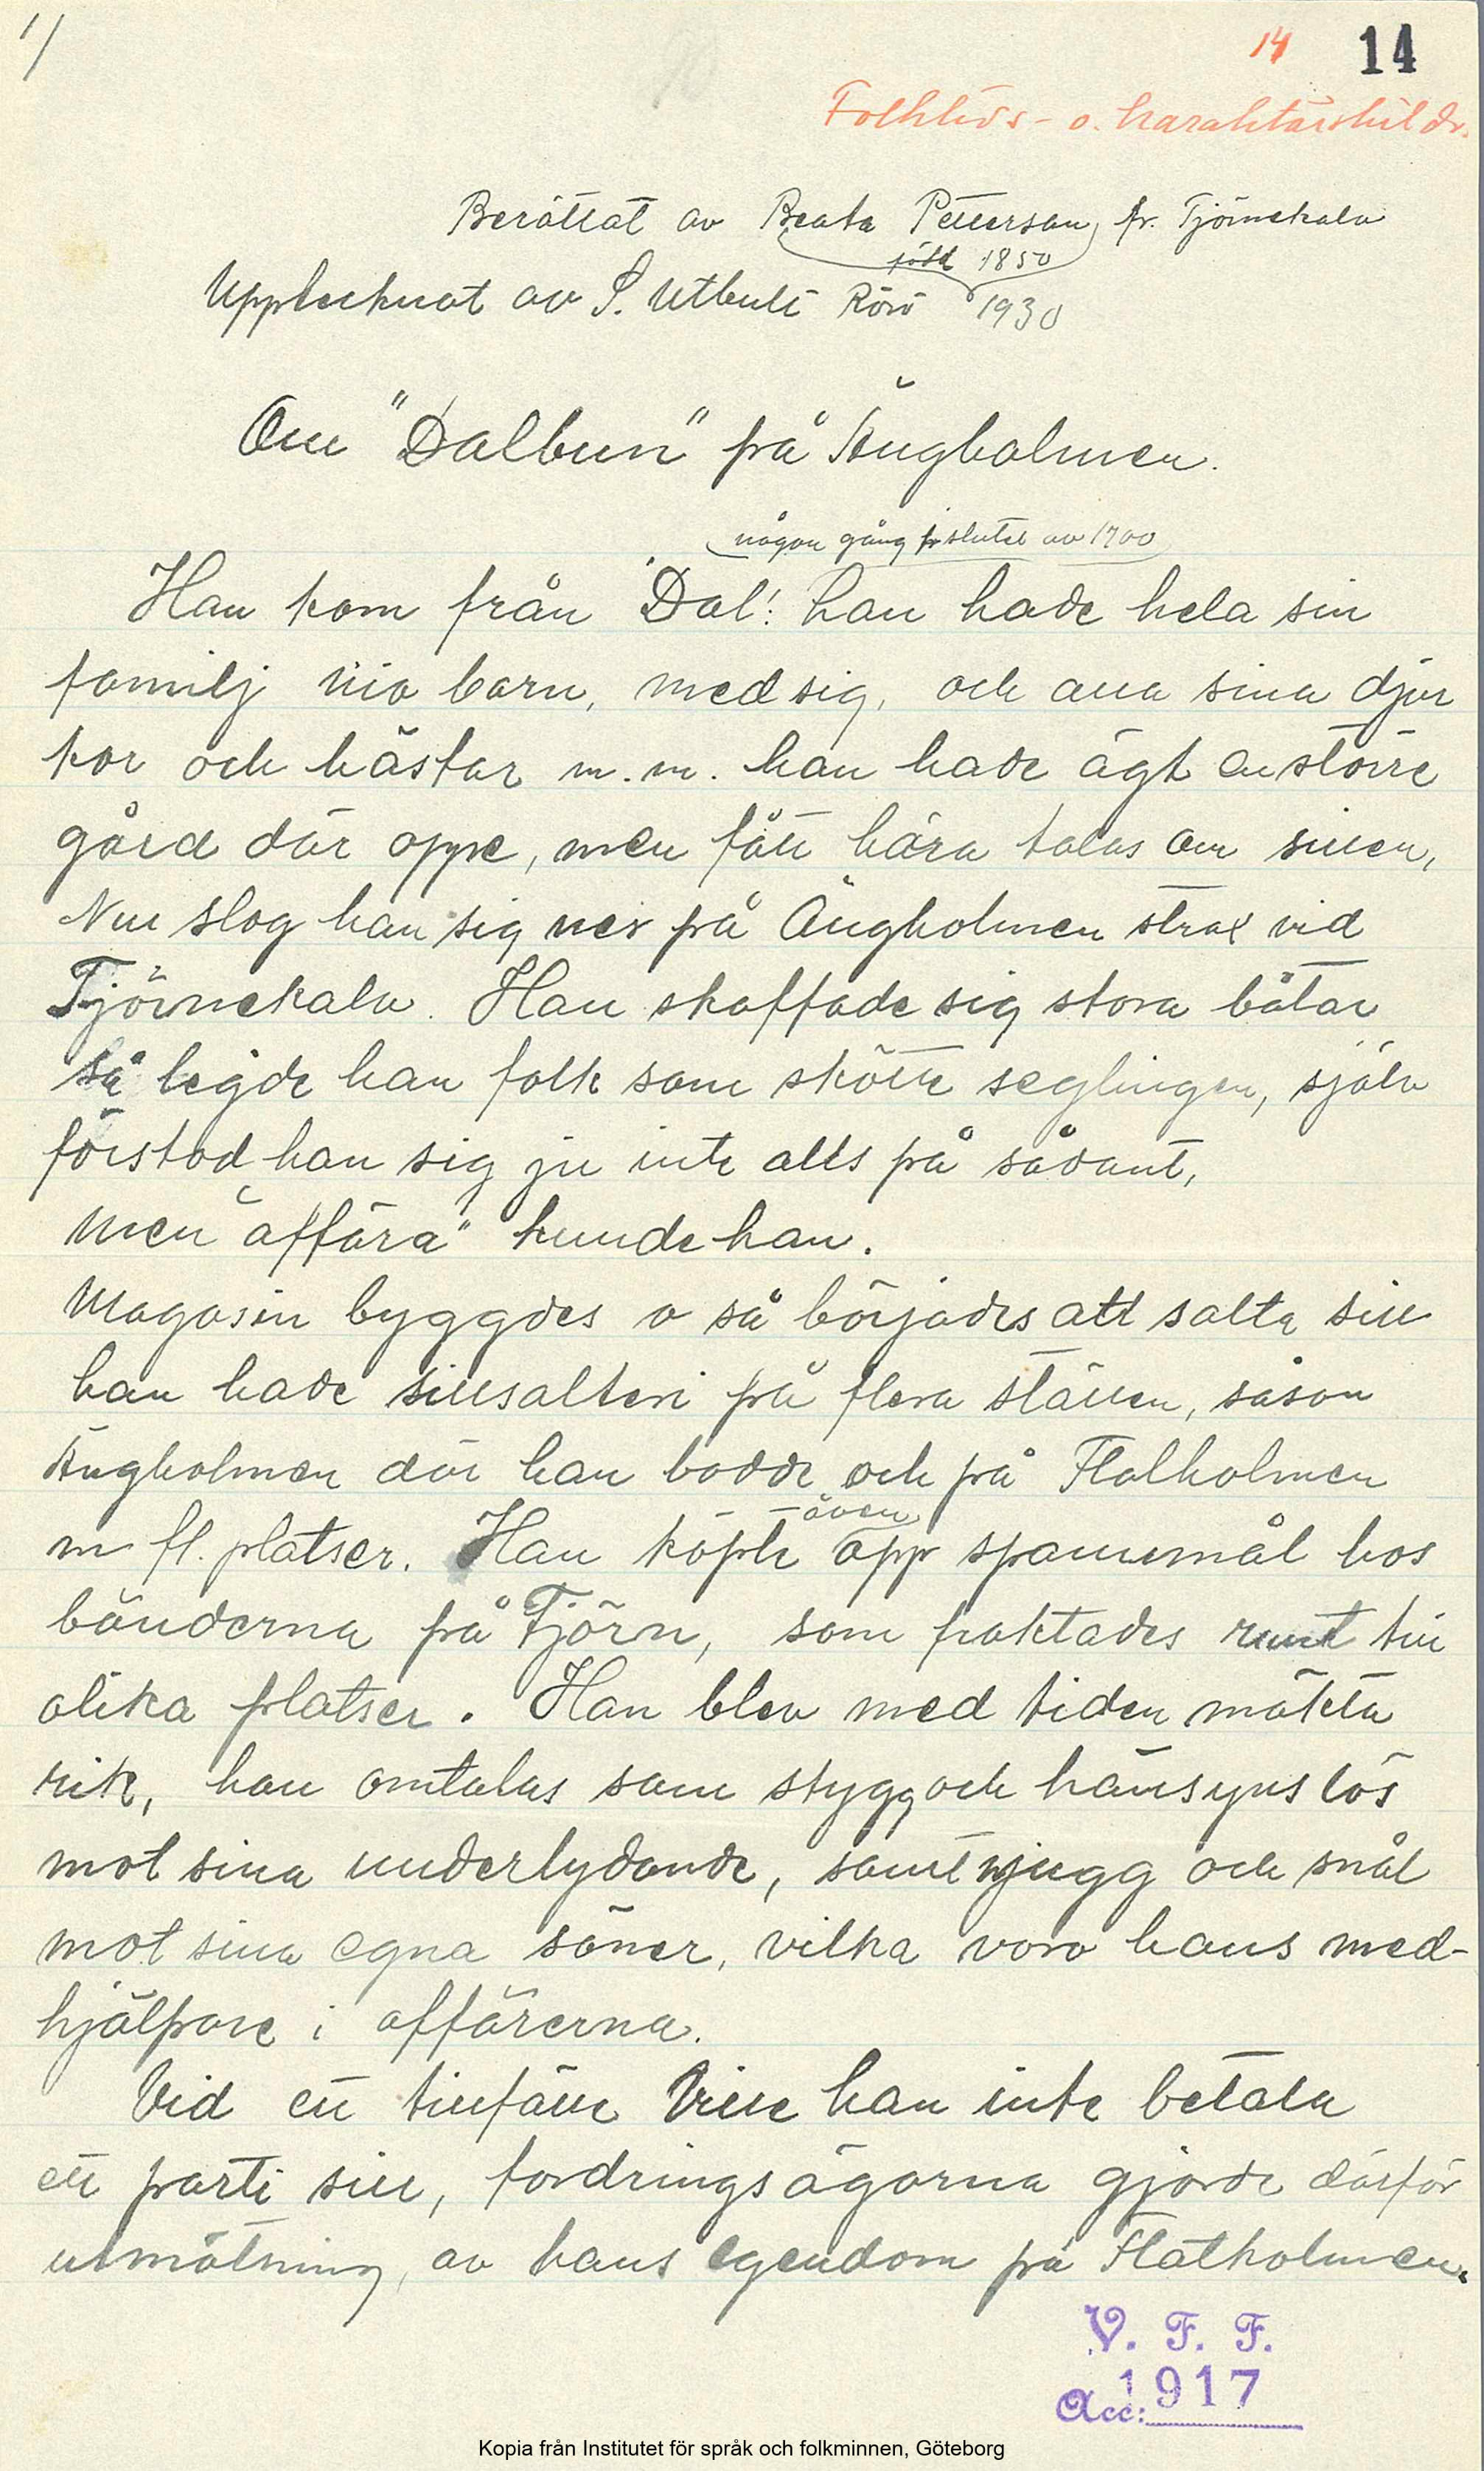 1/
14 14
Folklivs- o. karaktärsskildr.
Berättat av Beata Petterson, fr. Tjörnekalv
född 1850
Upptecknat av S. Utbult Rörö 1930
Om "Dalbun" på Ängholmen.
någon gång slutet av 1700
Han kom från "Dal": han hade hela sin
familj nio barn, med sig, och alla sina djur
kor och hästar m.m. han hade ägt en större
gård där oppe, men fått höra talas om sillen,
Nu slog han sig ner på Ängholmen strax vid
Tjörnekalv. Han skaffade sig stora båtar
så legde han folk som skötte seglingen, själv
förstod han sig ju inte alls på sådant,
men "affära" kunde han.
Magasin byggdes o så börjades att salta sill
han hade sillsalteri på flera ställen, såsom
Ängholmen där han bodde och på Flatholmen
m fl. platser. Han köpte även opp spannmål hos
bönderna på Tjörn, som fraktades runt till
olika platser. Han blev med tiden mäkta
rik, han omtalas som stygg och hänsynslös
mot sina underlydande, samt njugg och snål
mot sina egna söner, vilka voro hans med-
hjälpare i affärerna.
Vid ett tillfälle ville han inte betala
ett parti sill, fordringsägarna gjorde därför
utmätning, av hans egendom på Flatholmen.
V. F. F.
Acc: 1917
Kopia från Institutet för språk och folkminnen, Göteborg